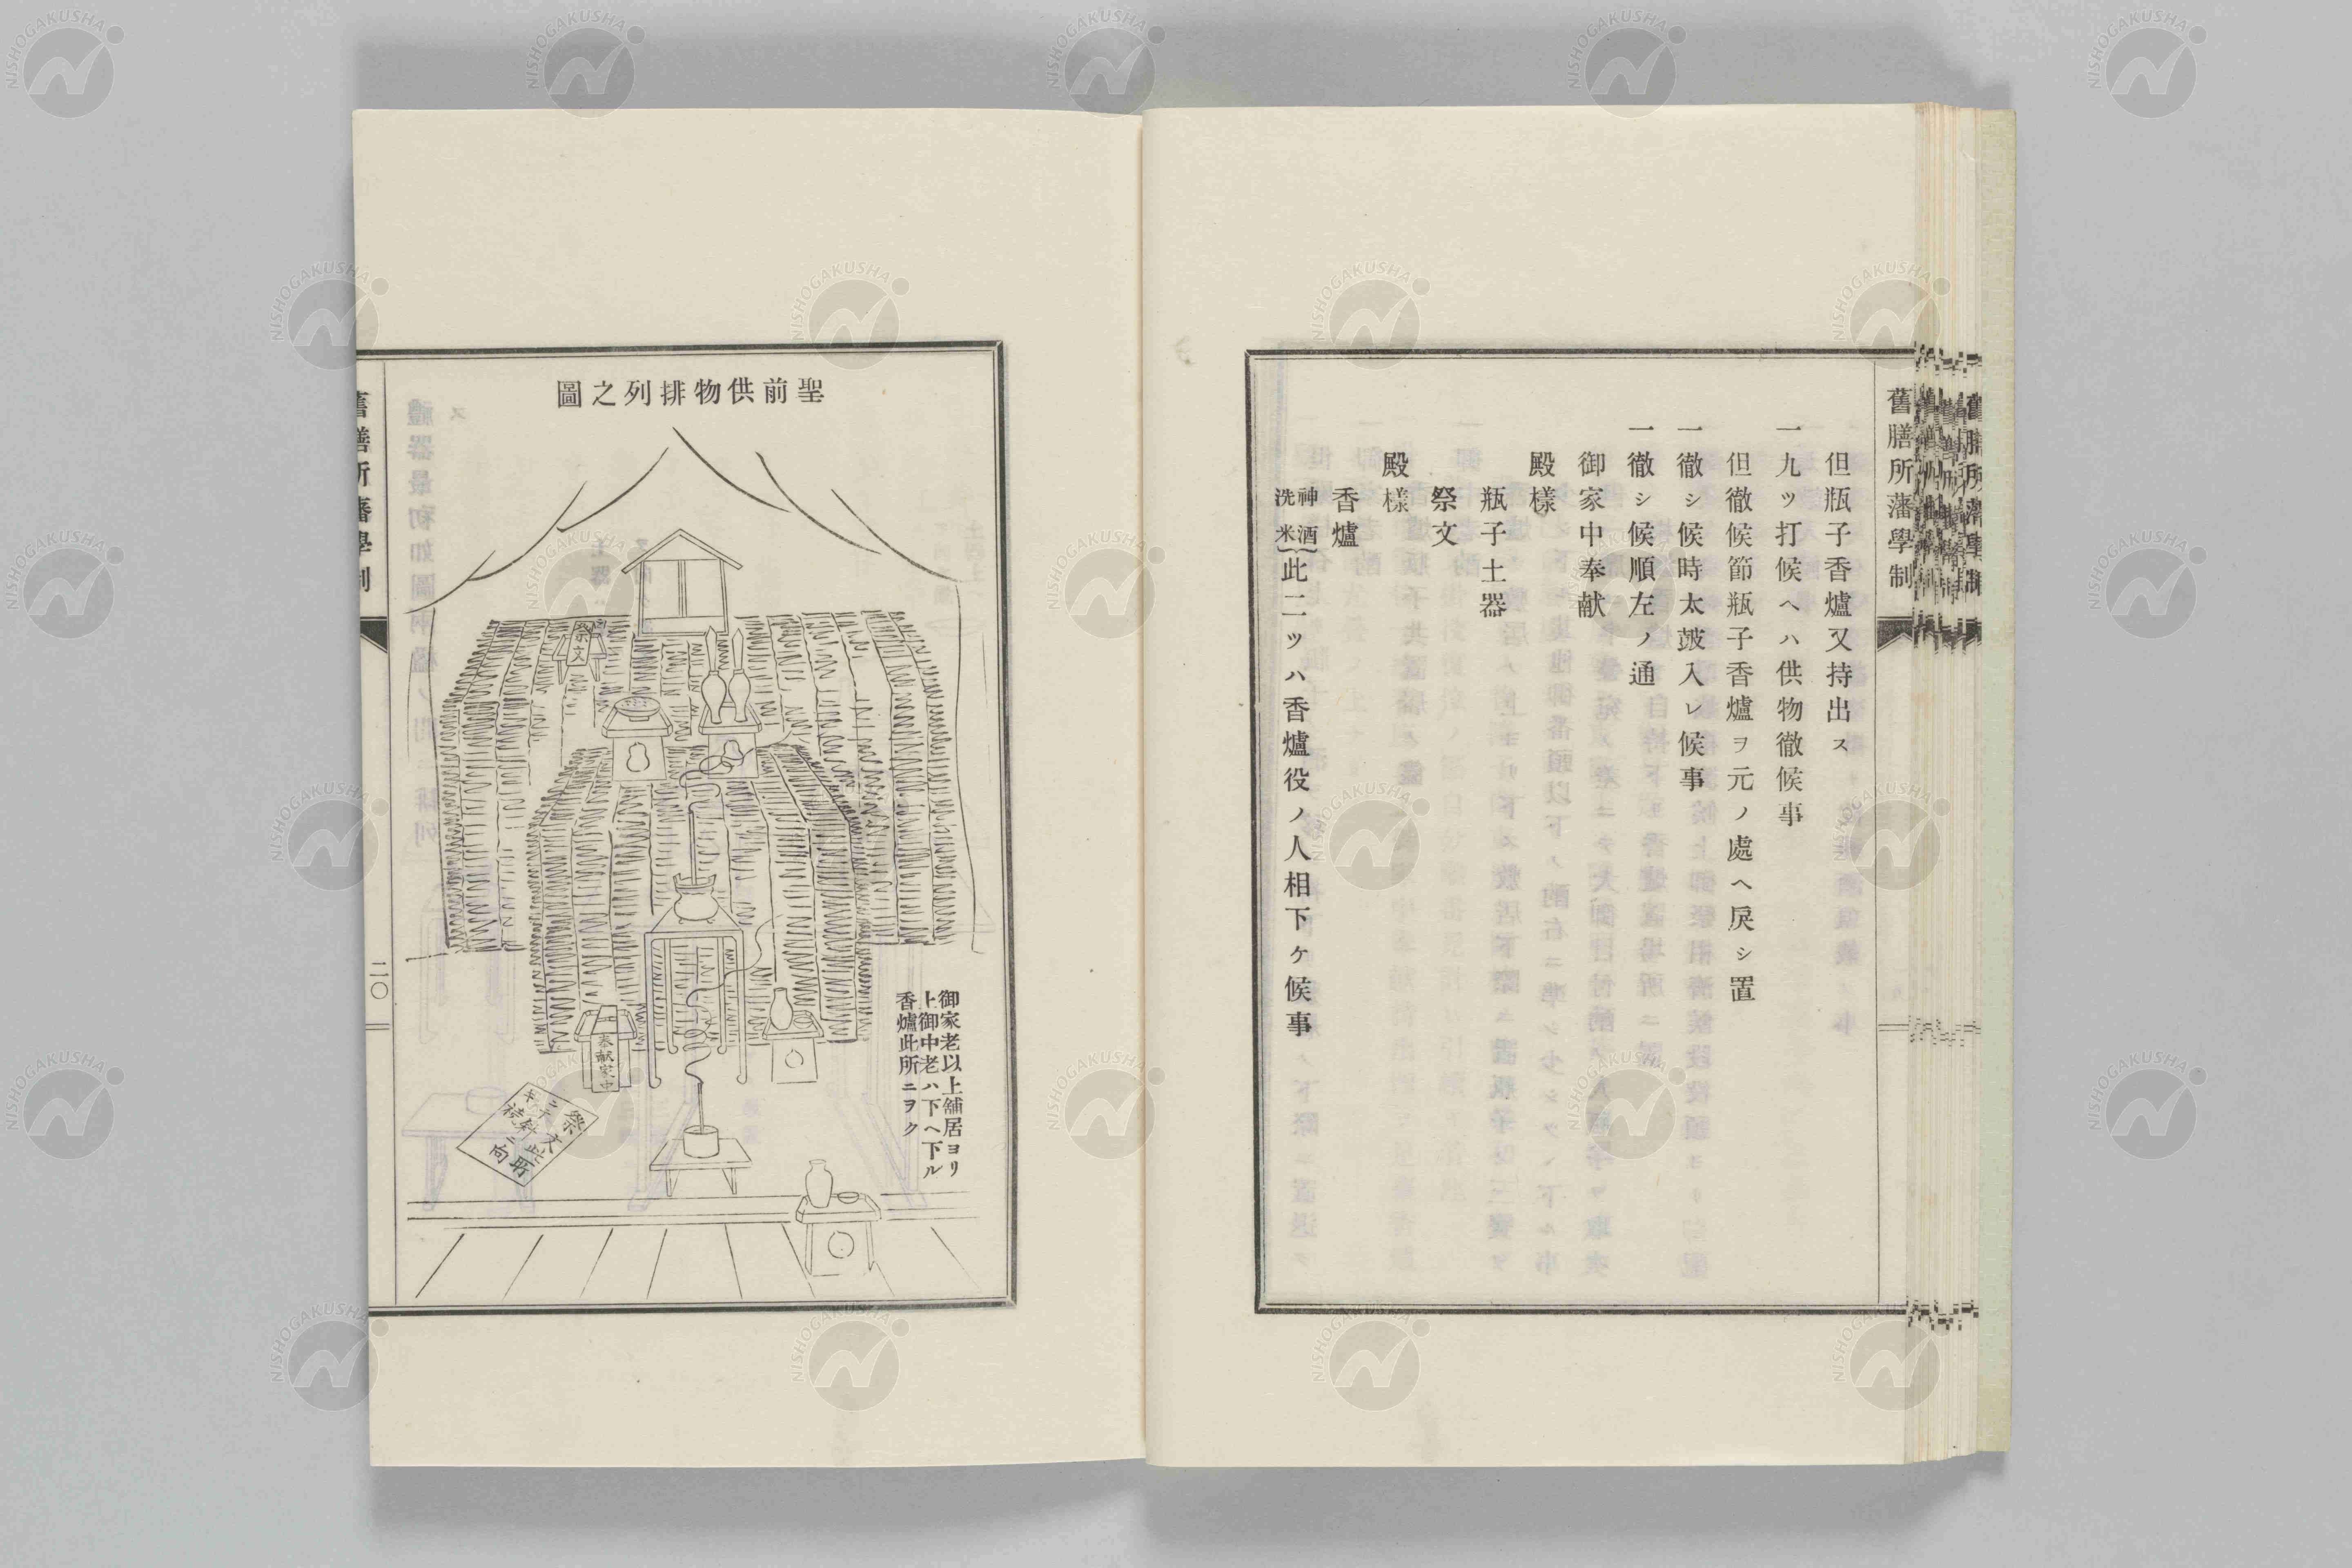 舊膳所藩學制
但瓶子香爐又持出ス
一九ツ打候ヘハ供物徹候事
但徹候節瓶子香爐ヲ元ノ處ヘ戻シ置
一徹シ候時太皷入レ候事
一徹シ候順左ノ通
御家中奉献
殿樣
瓶子土器
祭文
殿樣
香爐
神酒
洗米
此二ツハ香爐役ノ人相下ケ候事
聖前供物排列之圖
祭文
御家老以上舗居ヨリ
上御中老ハ下ヘ下ル
香爐此所ニヲク
奉献
家中
祭文此所
ニテ軒ニ向
舊膳所藩學制
二〇
NISHOGAKUSHA